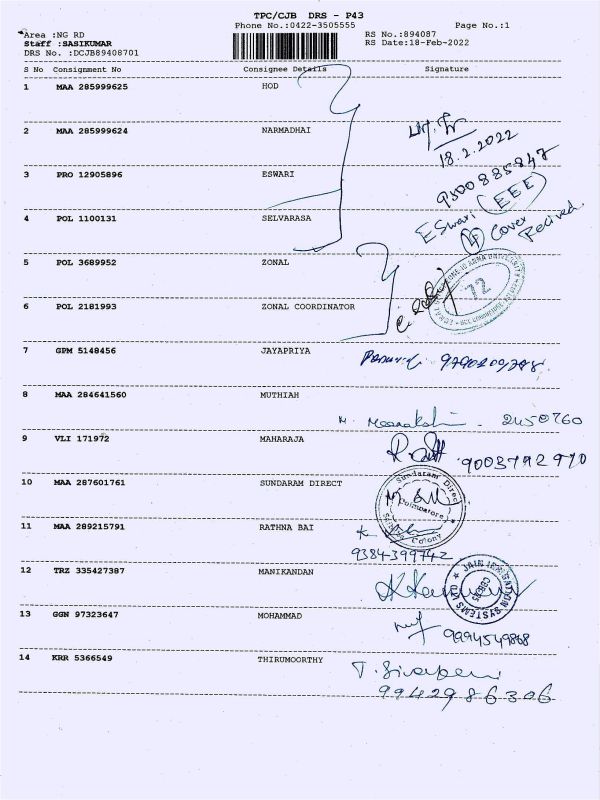 TPC/CJB DRS - P43
Area :NG RD Phone No.:0422-3505555 Page No.:1
Staff :SASIKUMAR RS No.:894087
DRS No. :DCJB89408701 RS Date:18-Feb-2022
S No Consignment No Consignee Details Signature
1 MAA 285999625 HOD
2 MAA 285999624 NARMADHAI
18.2.2022
3 PRO 12905896 ESWARI 9500885847
(EEE)
4 POL 1100131 SELVARASA ESwari Cover Recived
5 POL 3689952 ZONAL
72
6 POL 2181993 ZONAL COORDINATOR
7 GPM 5148456 JAYAPRIYA
8 MAA 284641560 MUTHIAH
M. Meenakshi - 2450760
9 VLI 171972 MAHARAJA
9003792970
10 MAA 287601761 SUNDARAM DIRECT
Sundaram Direct
Coimbatore
Colony
11 MAA 289215791 RATHNA BAI
9384399742
12 TRZ 335427387 MANIKANDAN
JAIN IRRIGATION SYSTEMS
13 GGN 97323647 MOHAMMAD
9994549868
14 KRR 5366549 THIRUMOORTHY
9942986306